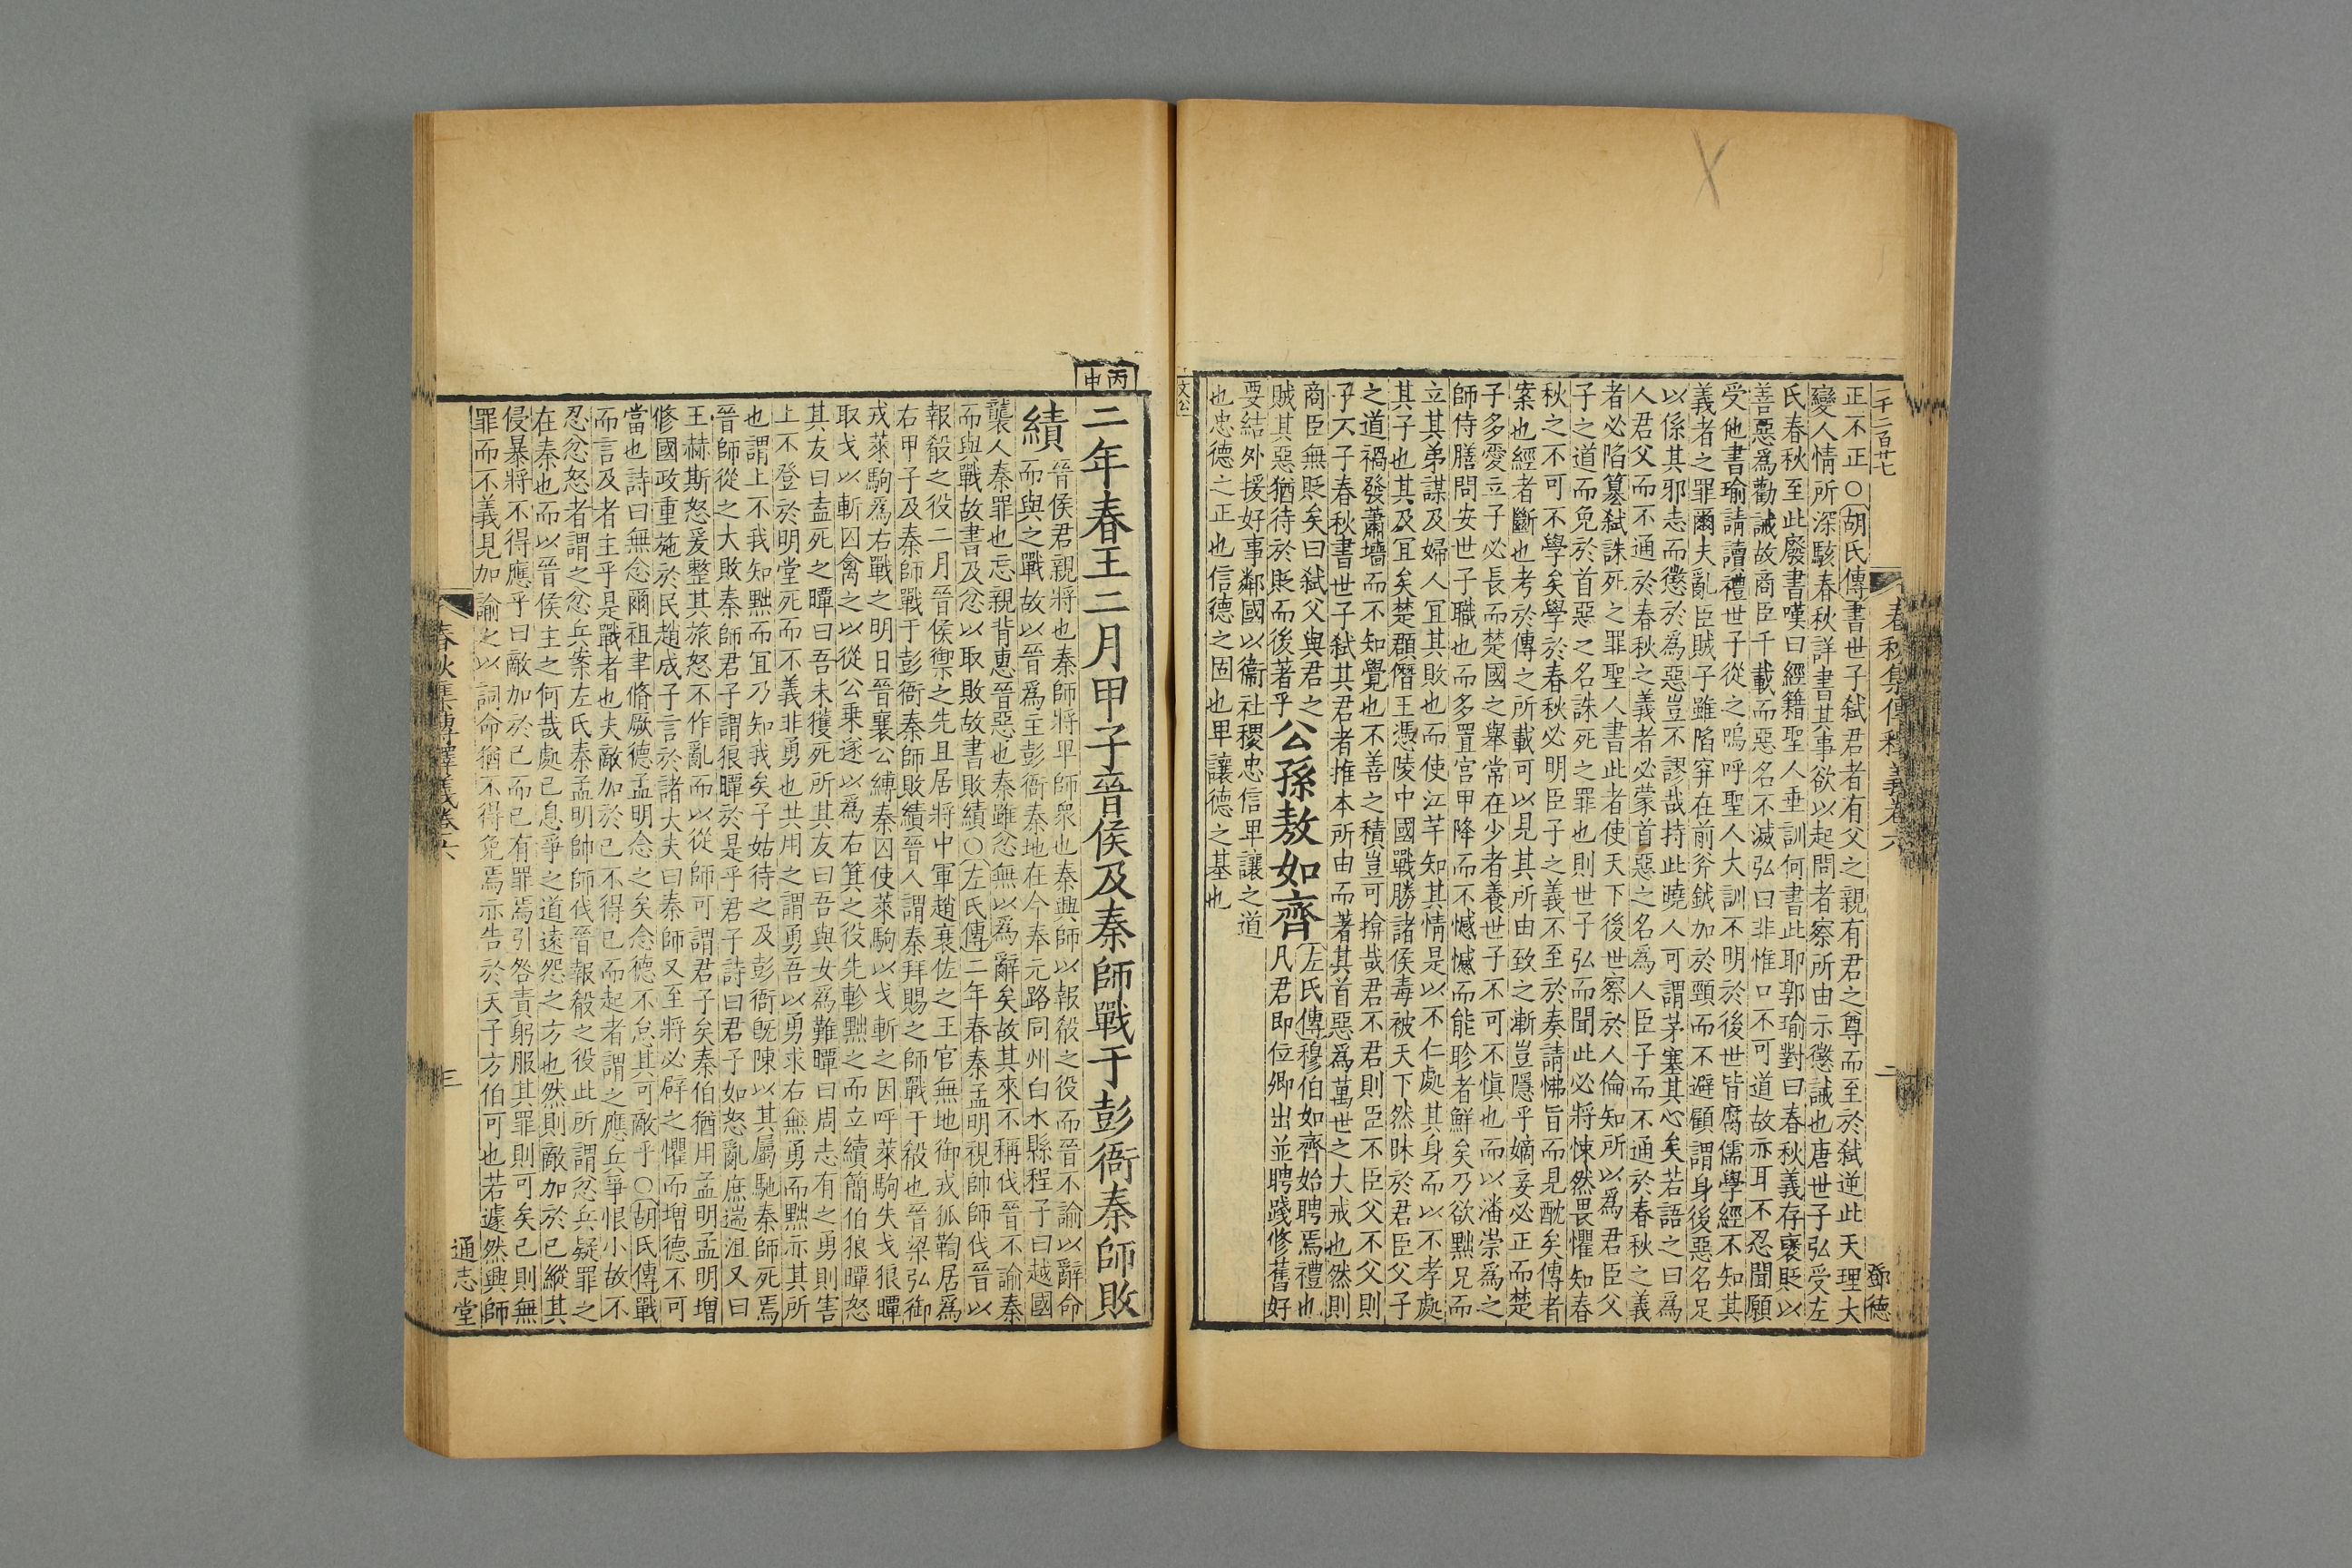 二千二百廿七
春秋集傳釋義卷六
二
鄧德
正不正〇胡氏傳書世子弑君者有父之親有君之尊而至於弑逆此天理大
變人情所深駭春秋詳書其事欲以起問者察所由示懲誡也唐世子弘受左
氏春秋至此廢書嘆曰經籍聖人垂訓何書此耶郭瑜對曰春秋義存襃貶以
善惡爲勸誡故商臣千載而惡名不滅弘曰非惟口不可道故亦耳不忍聞願
受他書瑜請讀禮世子從之嗚呼聖人大訓不明於後世皆腐儒學經不知其
義者之罪爾夫亂臣賊子雖陷穽在前斧鉞加於頸而不避顧謂身後惡名足
以係其邪志而懲於爲惡豈不謬哉持此曉人可謂茅塞其心矣若語之曰爲
人君父而不通於春秋之義者必蒙首惡之名爲人臣子而不通於春秋之義
者必陷簒弑誅死之罪聖人書此者使天下後世察於人倫知所以爲君臣父
子之道而免於首惡之名誅死之罪也則世子弘而聞此必將悚然畏懼知春
秋之不可不學矣學於春秋必明臣子之義不至於奏請怫旨而見酖矣傳者
案也經者斷也考於傳之所載可以見其所由致之漸豈隱乎嫡妾必正而楚
子多愛立子必長而楚國之舉常在少者養世子不可不愼也而以潘崇爲之
師侍膳問安世子職也而多置宫甲降而不憾憾而能眕者鮮矣乃欲黜兄而
立其弟謀及婦人宜其敗也而使江芊知其情是以不仁處其身而以不孝處
其子也其及宜矣楚頵僭王憑陵中國戰勝諸侯毒被天下然昧於君臣父子
之道禍發蕭墻而不知覺也不善之積豈可揜哉君不君則臣不臣父不父則
子不子春秋書世子弑其君者推本所由而著其首惡爲萬世之大戒也然則
商臣無貶矣曰弑父與君之
賊其惡猶待於貶而後著乎
公孫敖如齊
左氏傳穆伯如齊始聘焉禮也
凡君即位卿出並聘踐修舊好
要結外援好事鄰國以衞社稷忠信卑讓之道
也忠德之正也信德之固也卑讓德之基也
文公
丙申
二年春王二月甲子晉侯及秦師戰于彭衙秦師敗
績
晉侯君親將也秦師將平師衆也秦興師以報殽之役而晉不諭以辭命
而與之戰故以晉爲主彭衙秦地在今奉元路同州白水縣程子曰越國
襲人秦罪也忘親背惠晉惡也秦雖忿無以爲辭矣故其來不稱伐晉不諭秦
而與戰故書及忿以取敗故書敗績〇左氏傳二年春秦孟明視帥師伐晉以
報殽之役二月晉侯禦之先且居將中軍趙衰佐之王官無地御戎狐鞫居爲
右甲子及秦師戰于彭衙秦師敗績晉人謂秦拜賜之師戰于殽也晉梁弘御
戎萊駒爲右戰之明日晉襄公縛秦囚使萊駒以戈斬之囚呼萊駒失戈狼瞫
取戈以斬囚禽之以從公乘遂以爲右箕之役先軫黜之而立續簡伯狼瞫怒
其友曰盍死之瞫曰吾未獲死所其友曰吾與女爲難瞫曰周志有之勇則害
上不登於明堂死而不義非勇也共用之謂勇吾以勇求右無勇而黜亦其所
也謂上不我知黜而宜乃知我矣子姑待之及彭衙旣陳以其屬馳秦師死焉
晉師從之大敗秦師君子謂狼瞫於是乎君子詩曰君子如怒亂庶遄沮又曰
王赫斯怒爰整其旅怒不作亂而以從師可謂君子矣秦伯猶用孟明孟明增
修國政重施於民趙成子言於諸大夫曰秦師又至將必辟之懼而增德不可
當也詩曰無念爾祖聿脩厥德孟明念之矣念德不怠其可敵乎〇胡氏傳戰
而言及者主乎是戰者也夫敵加於已不得已而起者謂之應兵爭恨小故不
忍忿怒者謂之忿兵案左氏秦孟明帥師伐晉報殽之役此所謂忿兵疑罪之
在秦也而以晉侯主之何哉處已息爭之道遠怨之方也然則敵加於已縱其
侵暴將不得應乎曰敵加於已而已有罪焉引咎責躬服其罪則可矣已則無
罪而不義見加諭之以詞命猶不得免焉亦告於天子方伯可也若遽然興師
春秋集傳釋義卷六
三
通志堂